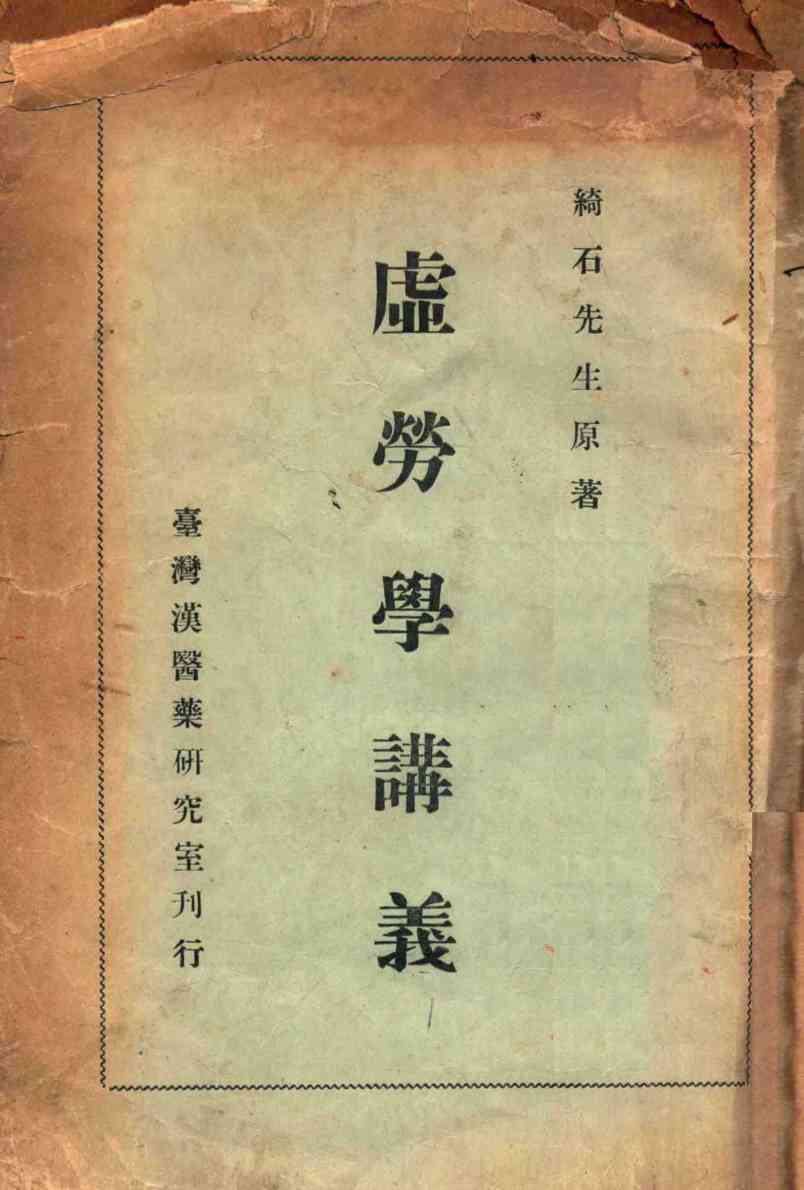 綺石先生原著
虛勞學講義
臺灣漢醫藥硏究室刋行